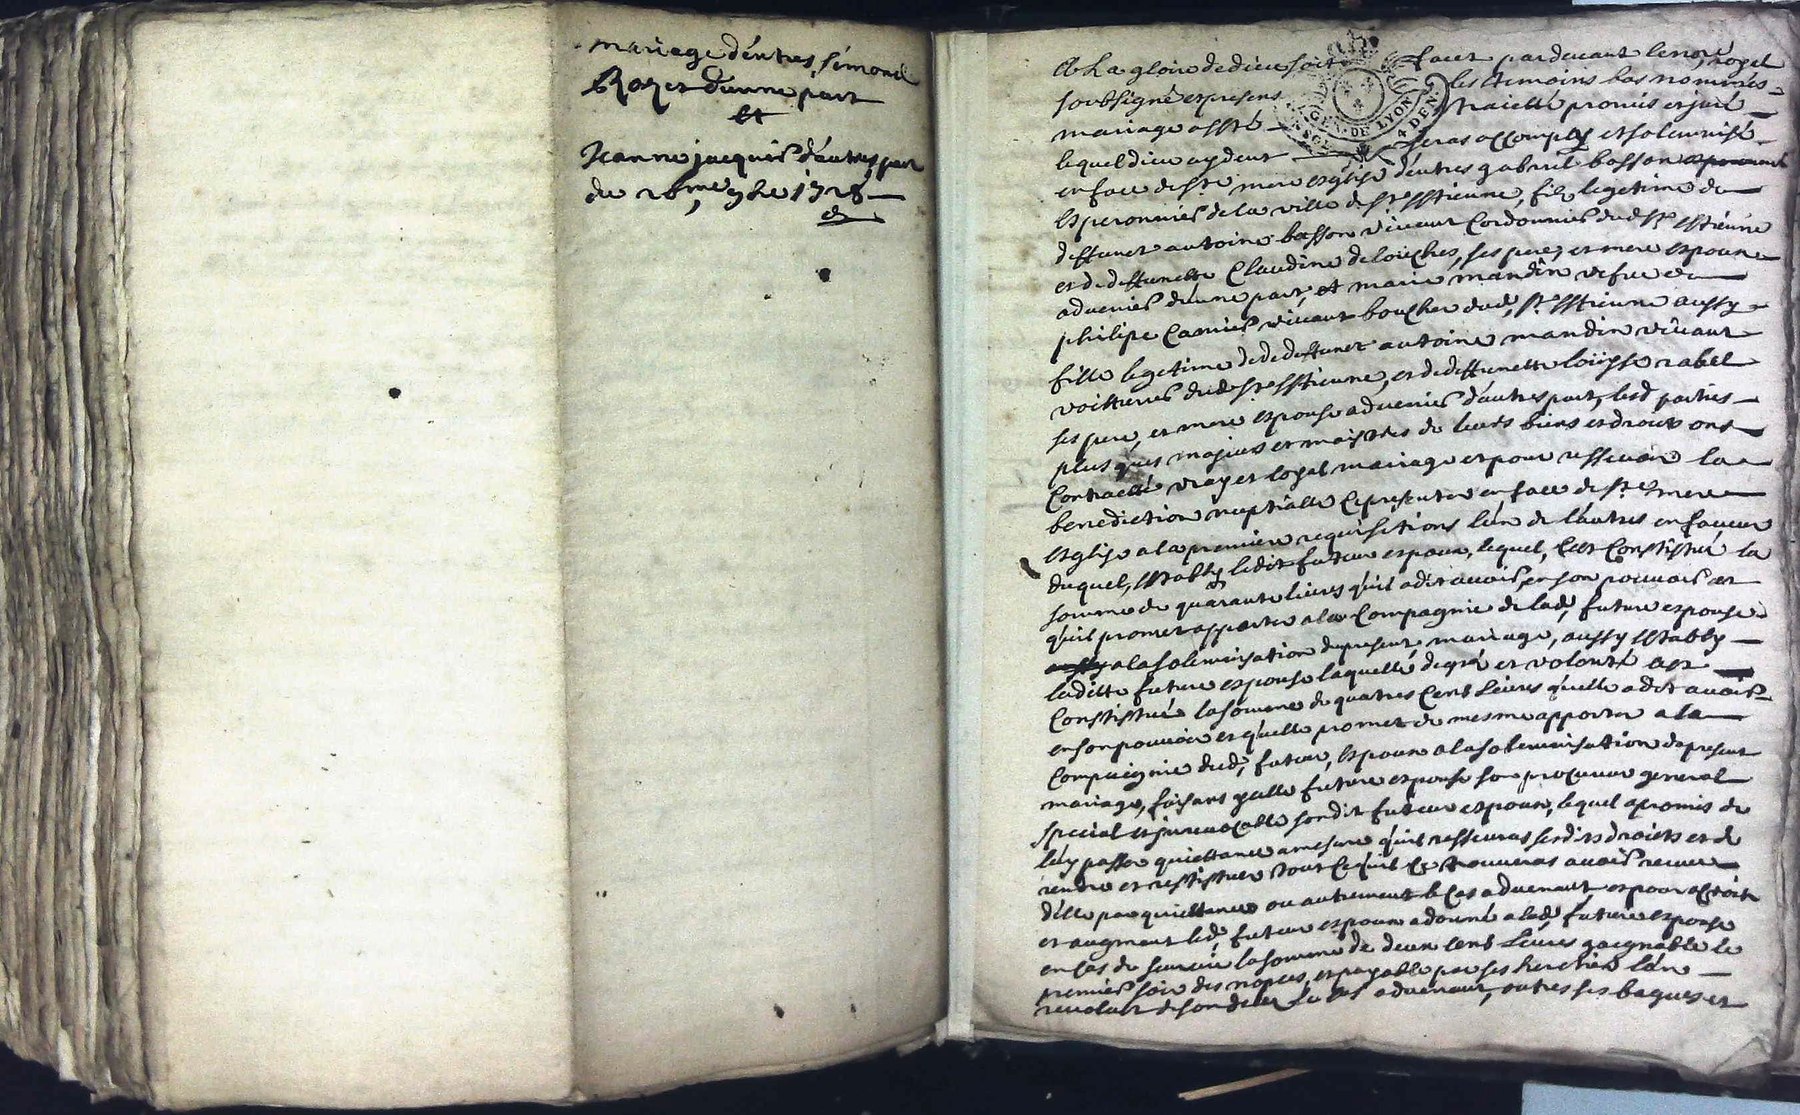 mariage d'entres, simond
Rozet d'une part
et
Jeanne jacquier d'autres part
du 26me 9bre 1728
A La gloire de dieu soit facit pardevant le no.re royal
soubsigné et presens les temoins bas nommés
mariage a esté traietté promis et juré
lequel dieu aydent seras accomply et solemnisé
en face de ste mere esglise d'entres gabriel basson
esperonnier de la ville de st esttienne, filz legetime de
deffunct antoine basson vivant Cordonnier dud st esttienne
et de deffunette Claudine delouches, ses pere, et mere espoux
advenir d'une part, et marie mandin vefue de
philipe Carrier vivant boucher dud, st. esttienne aussy
fille legetime de deffunct antoine mandin vivant
voitturier dud st esttienne, et de deffunette loüysse rabel
ses pere, et mere espouse advenir d'autres part, lesd parties
plus que majeurs et maistres de leurs biens et droits ont
Contractté vray et loyal mariage et pour ressevoir la
benediction nuptialle Ce presenter en face de ste mere
esglise a la premiere requisitions l'un de l'autres en faveur
duquel, esttably ledit futeur espoux, lequel, C'est Consttitué la
somme de quarante livres qu'il a dit avoir en son pouvoir et
qu'il promet apporter a la Compagnie de lad, future espouse
a la solemnisation du present mariage, aussy esttably
laditte future espouse laquelle de gré et volonté c'est
Consttitué la somme de quatres Cent livres qu'elle a dit avoir
en son pouvoir et qu'elle promet de mesme apporter a la
Compaignie dud, futeur, espoux a la solemnisation du present
mariage, faisant ycelle future espouse son procureur general
special et jrrevocable sondit futeur espoux, lequel a promis de
luy passer quiettance a mesure qu'il ressevras sesdits droicts et de
rendre et resttituer tout Ce qu'il Ce trouveras avoir receu
d'elle par quiettance ou autrement le Cas advenant, et pour accroit
et augment led, futeur espoux a donné a lad, future espouse
en Cas de survie la somme de deux Cent Livres gaignable le
premier soir des nopces, et payable par ses heretier l'an
revolut de son deces Le Cas advenant, outres ses bagues et